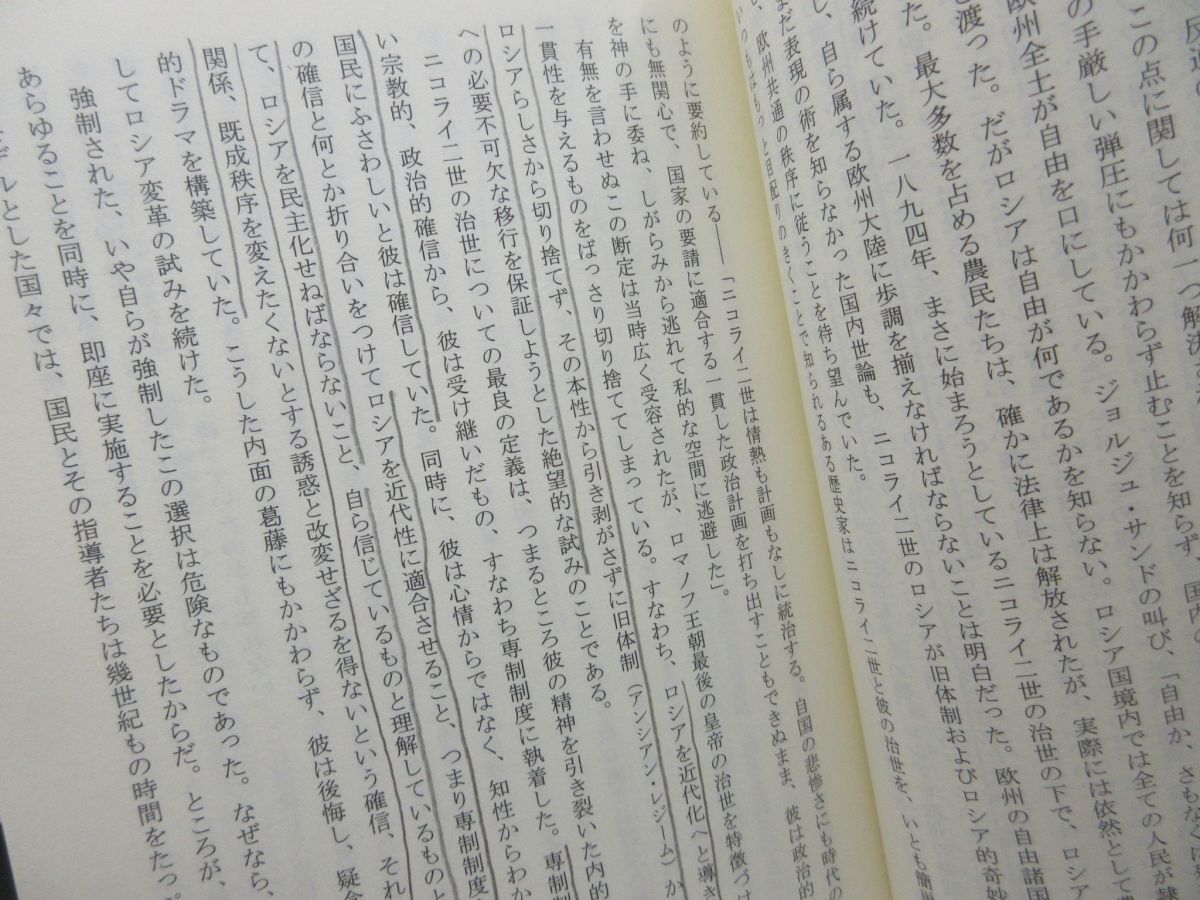 この点に関しては何一つ解決
の手厳しい弾圧にもかかわらず止むことを知らず、国内の
欧州全土が自由を口にしている。ジョルジュ・サンドの叫び、「自由か、さもな
渡った。だがロシアは自由が何であるかを知らない。ロシア国境内では全ての人民が隷
た。最大多数を占める農民たちは、確かに法律上は解放されたが、実際には依然として
続けていた。一八九四年、まさに始まろうとしているニコライ二世の治世の下で、ロシ
し、自ら属する欧州大陸に歩調を揃えなければならないことは明白だった。欧州の自由諸国
まだ表現の術を知らなかった国内世論も、ニコライ二世のロシアが旧体制およびロシア的奇妙
、欧州共通の秩序に従うことを待ち望んでいた。
いつもはもっと目配りのきくことで知られるある歴史家はニコライ二世と彼の治世を、いとも簡単
のように要約している――「ニコライ二世は情熱も計画もなしに統治する。自国の悲惨さにも時代の
にも無関心で、国家の要請に適合する一貫した政治計画を打ち出すこともできぬまま、彼は政治的
を神の手に委ね、しがらみから逃れて私的な空間に逃避した」。
有無を言わせぬこの断定は当時広く受容されたが、ロマノフ王朝最後の皇帝の治世を特徴づけ
一貫性を与えるものをばっさり切り捨ててしまっている。すなわち、ロシアを近代化へと導き
ロシアらしさから切り捨てず、その本性から引き剥がさずに旧体制（アンシアン・レジーム）か
への必要不可欠な移行を保証しようとした絶望的な試みのことである。
ニコライ二世の治世についての最良の定義は、つまるところ彼の精神を引き裂いた内的
い宗教的、政治的確信から、彼は受け継いだもの、すなわち専制制度に執着した。専制制
国民にふさわしいと彼は確信していた。同時に、彼は心情からではなく、知性からわか
の確信と何とか折り合いをつけてロシアを近代性に適合させること、つまり専制制度
て、ロシアを民主化せねばならないこと、自ら信じているものと理解しているものと
関係、既成秩序を変えたくないとする誘惑と改変せざるを得ないという確信、それ
的ドラマを構築していた。こうした内面の葛藤にもかかわらず、彼は後悔し、疑念
してロシア変革の試みを続けた。
強制された、いや自らが強制したこの選択は危険なものであった。なぜなら、
あらゆることを同時に、即座に実施することを必要としたからだ。ところが、
デルとした国々では、国民とその指導者たちは幾世紀もの時間をたっ